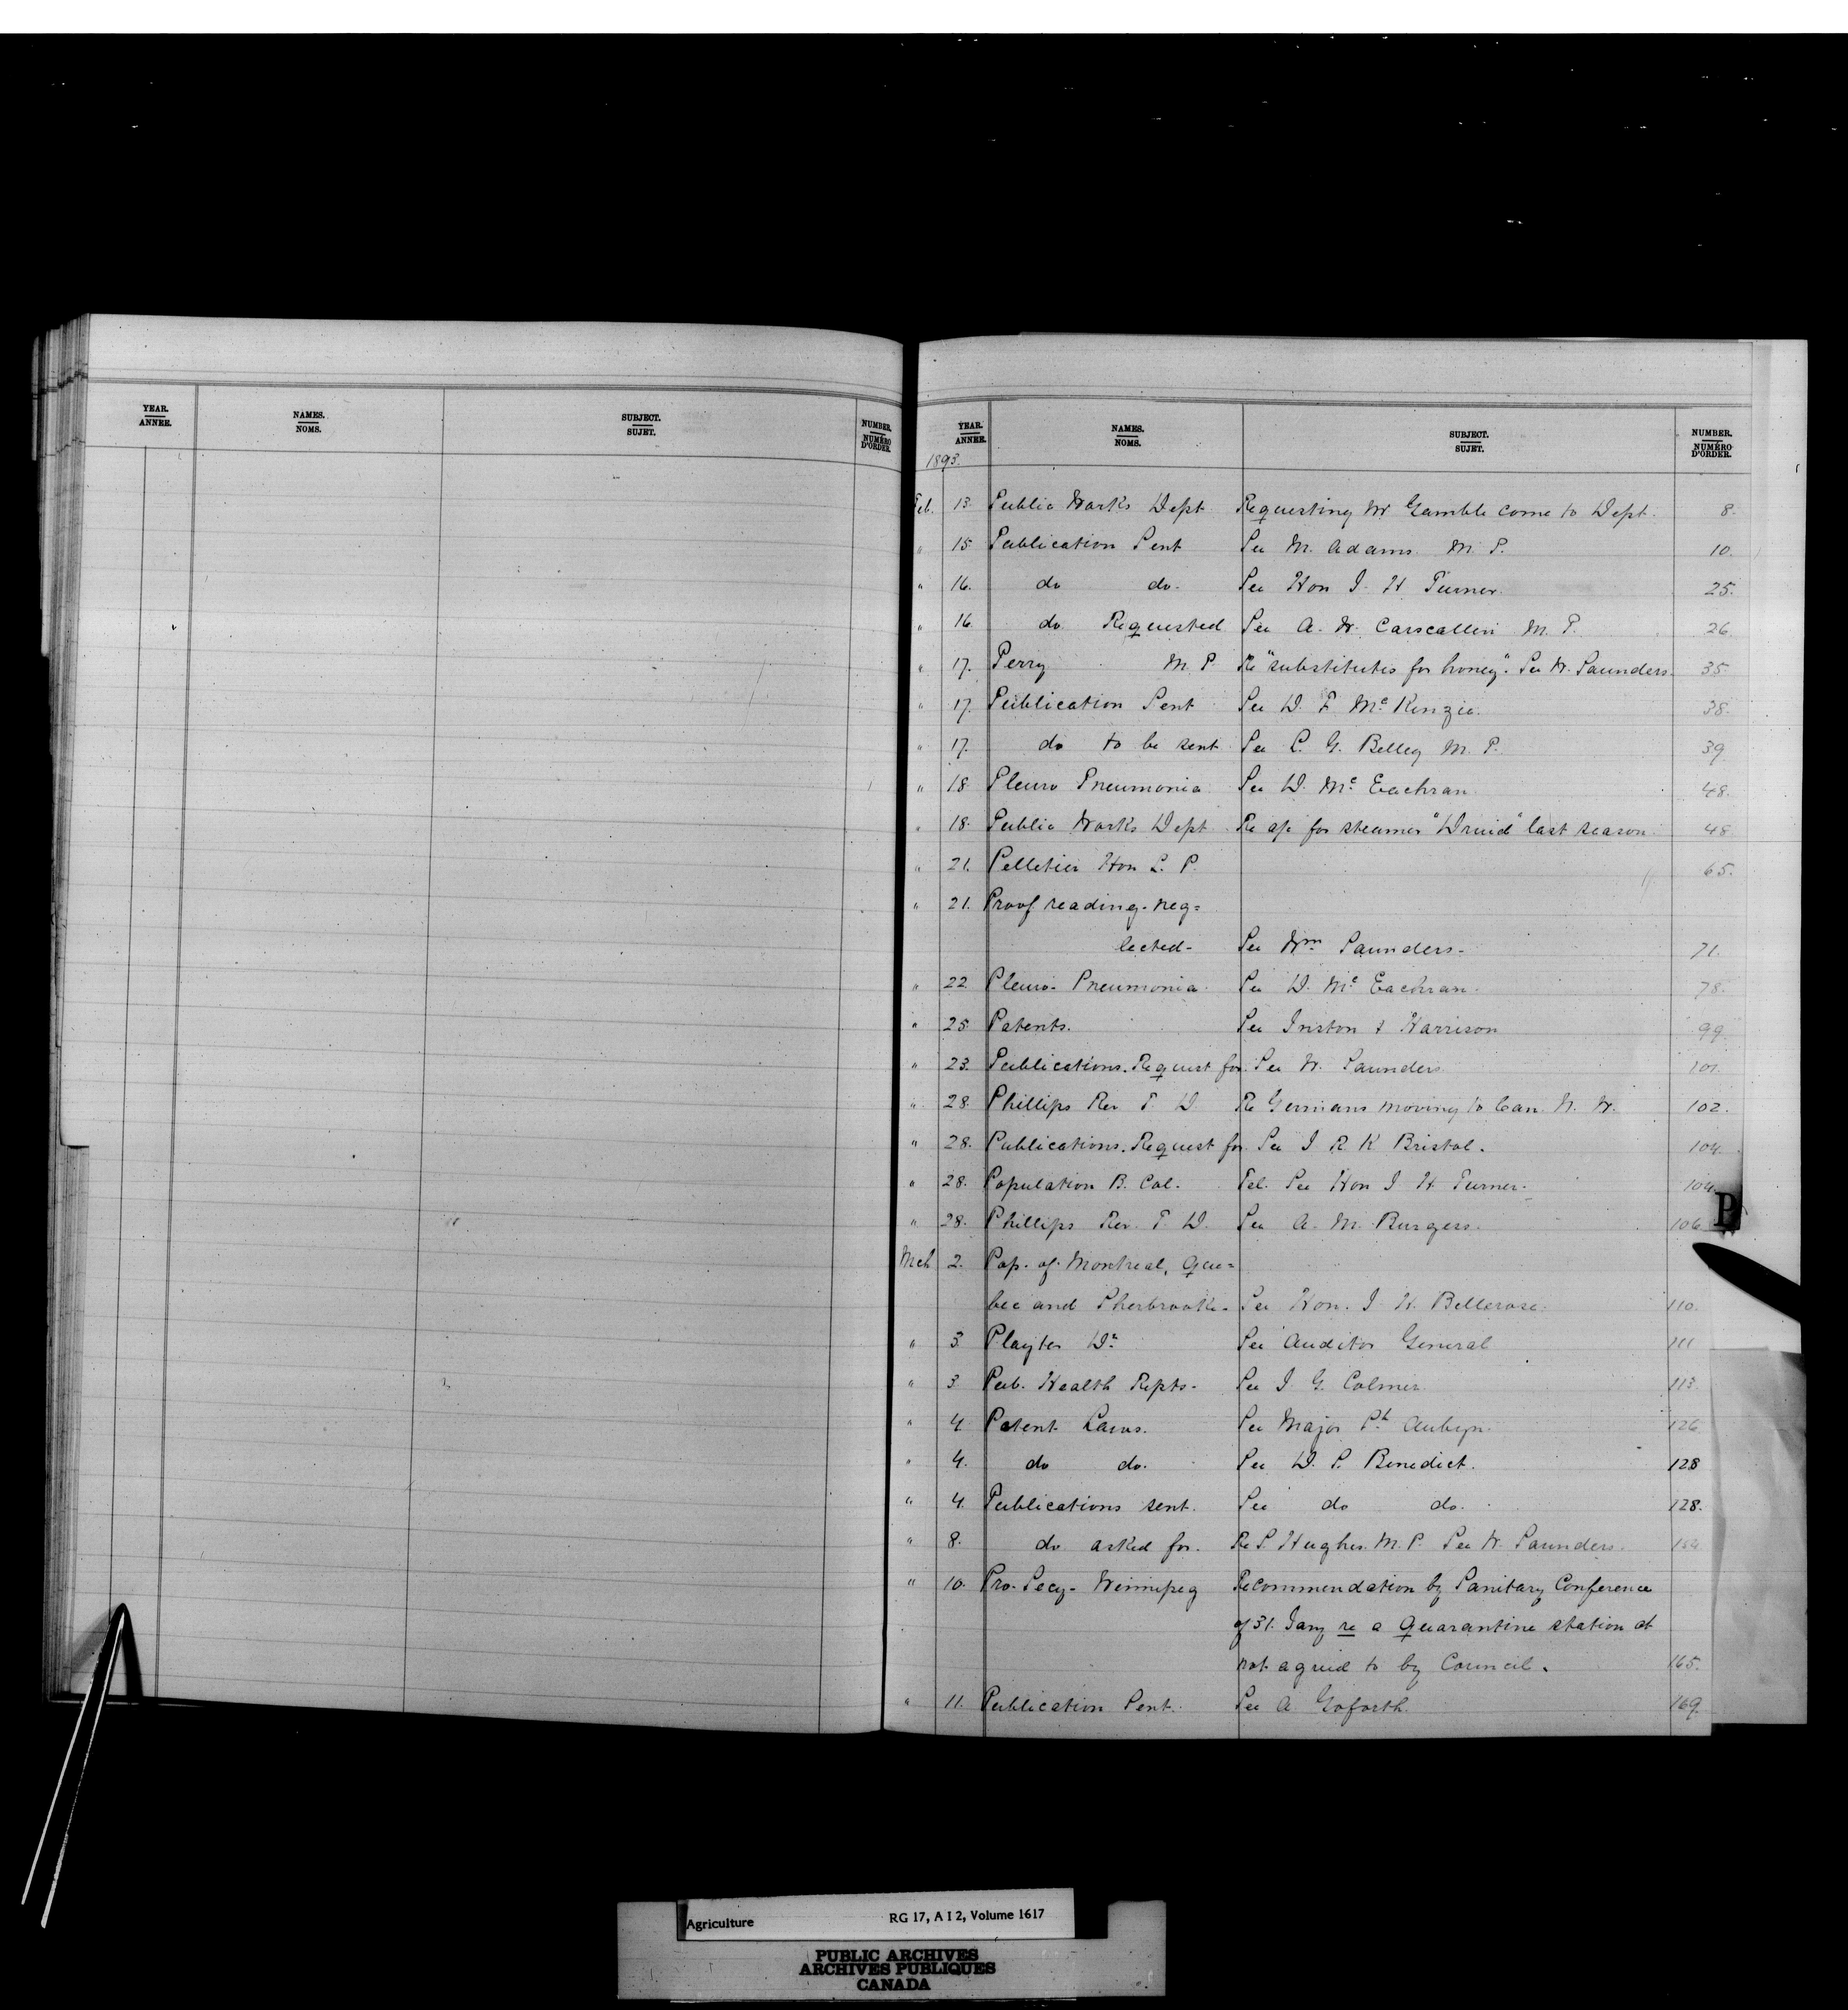 YEAR. ANNEE. NAMES. NOMS. SUBJECT. SUJET. NUMBER. NUMÉRO D'ORDER.
YEAR. ANNEE. NAMES. NOMS. SUBJECT. SUJET. NUMBER. NUMÉRO D'ORDER.
1893.
Feb. 13. Public Works Dept Requesting Mr Gamble come to Dept. 8.
" 15 Publication Sent See M. Adams M. P. 10.
" 16. do do. See Hon J. H. Turner. 25.
" 16 do Requested See A. W. Carscallen M. P. 26
" 17. Perry M. P. Re "substitutes for honey". See W. Saunders. 35
" 17. Publication Sent See D. F. McKenzie. 38.
" 17. do to be sent. See L. G. Belley M. P. 39
" 18 Pleuro Pneumonia See D. Mc Eachran. 48.
" 18. Public Works Dept Re a/c for steamer "Druid" last season. 48
" 21. Pelletier Hon L. P. 65.
" 21. Proof reading-neg=
lected- See Wm Saunders- 71.
" 22 Pleuro-Pneumonia. See D. Mc Eachran. 78.
" 25 Patents. See Inston & Harrison 99.
" 23. Publications. Request for. See W. Saunders. 101.
" 28 Phillips Rev. T. D Re Germans moving to Can. N. W. 102.
" 28. Publications. Request for See J R K Bristol. 104.
" 28. Population B. Col. Tel. See Hon J H Turner. 104
" 28. Phillips Rev. T. D. See A. M. Burgess. 106
P
Mch 2. Pop. of Montreal, Que=
bec and Sherbrooke- See Hon. J. H. Bellerose. 110.
" 3 Playter Dr. See Auditor General 111
" 3 Pub. Health Repts- See J. G. Colmer 113.
" 4 Patent Laws. See Major St. Aubyn. 126
" 4. do do. See D. S. Benedict. 128
" 4. Publications sent. See do do. 128.
" 8. do asked for. Re S. Hughes. M. P. See W. Saunders.
" 10. Pro. Secy- Winnipeg Recommendation by Sanitary Conference
of 31. Jany re a Quarantine station at
not agreed to by Council. 165.
" 11. Publication Sent. See A Goforth. 169.
Agriculture RG 17, A I 2, Volume 1617
PUBLIC ARCHIVES
ARCHIVES PUBLIQUES
CANADA